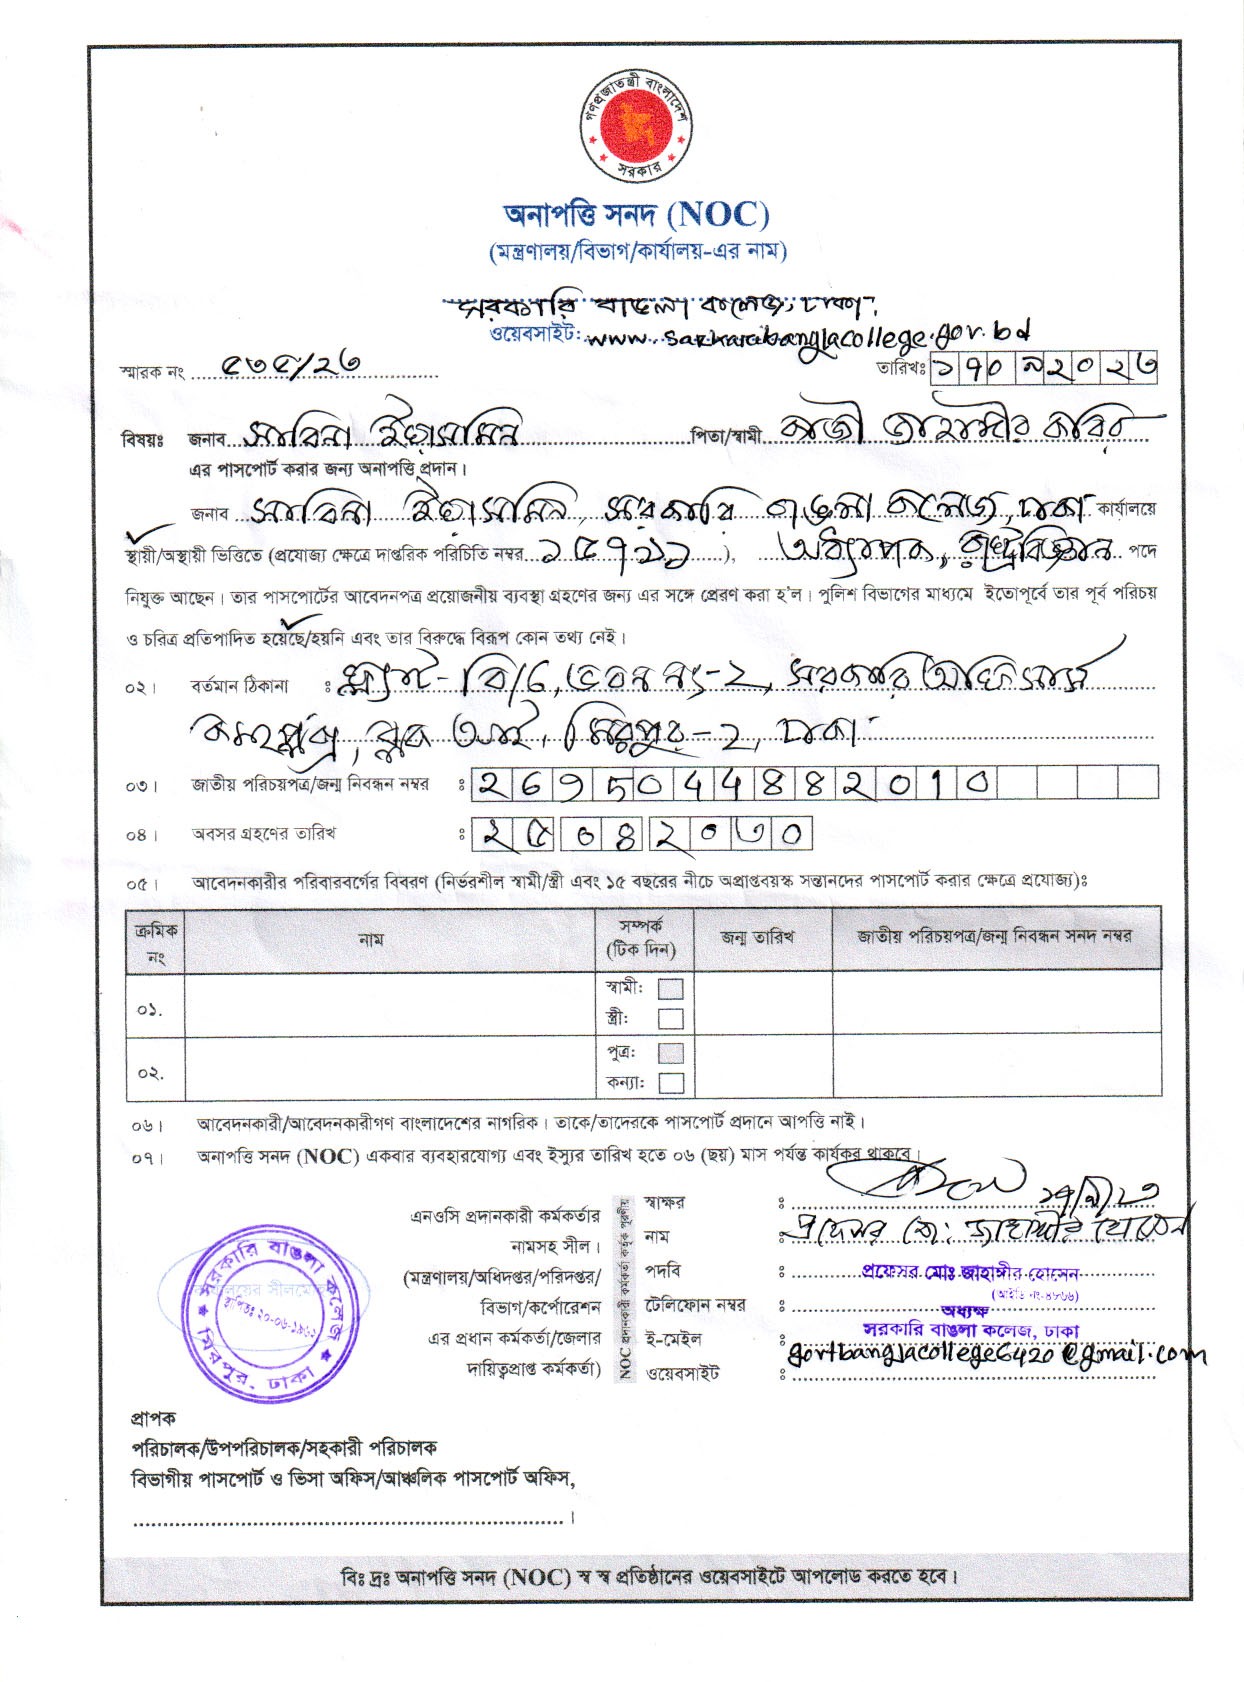 গণপ্রজাতন্ত্রী বাংলাদেশ
সরকার
অনাপত্তি সনদ (NOC)
(মন্ত্রণালয়/বিভাগ/কার্যালয়-এর নাম)
সরকারি বাঙলা কলেজ, ঢাকা।
ওয়েবসাইট: www.sarkaribanglacollege.gov.bd
স্মারক নং ৫৩৫/২৩
তারিখঃ ১৭০৯২০২৩
বিষয়ঃ জনাব সাবিনা ইয়াসমিন পিতা/স্বামী কাজী জাহাঙ্গীর কবির
এর পাসপোর্ট করার জন্য অনাপত্তি প্রদান।
জনাব সাবিনা ইয়াসমিন, সরকারি বাঙলা কলেজ, ঢাকা কার্যালয়ে
স্থায়ী/অস্থায়ী ভিত্তিতে (প্রযোজ্য ক্ষেত্রে দাপ্তরিক পরিচিতি নম্বর ১৫৭১১), অধ্যাপক, রাষ্ট্রবিজ্ঞান পদে
নিযুক্ত আছেন। তার পাসপোর্টের আবেদনপত্র প্রয়োজনীয় ব্যবস্থা গ্রহণের জন্য এর সঙ্গে প্রেরণ করা হ'ল। পুলিশ বিভাগের মাধ্যমে ইতোপূর্বে তার পূর্ব পরিচয়
ও চরিত্র প্রতিপাদিত হয়েছে/হয়নি এবং তার বিরুদ্ধে বিরূপ কোন তথ্য নেই।
০২। বর্তমান ঠিকানা : ফ্ল্যাট- বি/6, ভবন নং-2, সরকারি অফিসার্স
কমপ্লেক্স, ব্লক আই, মিরপুর-2, ঢাকা
০৩। জাতীয় পরিচয়পত্র/জন্ম নিবন্ধন নম্বর : 2695044882010
০৪। অবসর গ্রহণের তারিখ : ২৫০৪২০৩০
০৫। আবেদনকারীর পরিবারবর্গের বিবরণ (নির্ভরশীল স্বামী/স্ত্রী এবং ১৫ বছরের নীচে অপ্রাপ্তবয়স্ক সন্তানদের পাসপোর্ট করার ক্ষেত্রে প্রযোজ্য)ঃ
ক্রমিক নং নাম সম্পর্ক (টিক দিন) জন্ম তারিখ জাতীয় পরিচয়পত্র/জন্ম নিবন্ধন সনদ নম্বর
০১. স্বামী:
স্ত্রী:
০২. পুত্র:
কন্যা:
০৬। আবেদনকারী/আবেদনকারীগণ বাংলাদেশের নাগরিক। তাকে/তাদেরকে পাসপোর্ট প্রদানে আপত্তি নাই।
০৭। অনাপত্তি সনদ (NOC) একবার ব্যবহারযোগ্য এবং ইস্যুর তারিখ হতে ০৬ (ছয়) মাস পর্যন্ত কার্যকর থাকবে।
এনওসি প্রদানকারী কর্মকর্তার
নামসহ সীল।
(মন্ত্রণালয়/অধিদপ্তর/পরিদপ্তর/
বিভাগ/কর্পোরেশন
এর প্রধান কর্মকর্তা/জেলার
দায়িত্বপ্রাপ্ত কর্মকর্তা)
NOC প্রদানকারী কর্মকর্তা কর্তৃক পূরণীয়
স্বাক্ষর : ১৭/৯/২৩
নাম : প্রফেসর মো: জাহাঙ্গীর হোসেন
পদবি : প্রফেসর মোঃ জাহাঙ্গীর হোসেন
(আইডি নং-৪৮৬৬)
টেলিফোন নম্বর : অধ্যক্ষ
ই-মেইল : সরকারি বাঙলা কলেজ, ঢাকা
govtbanglacollege6420@gmail.com
ওয়েবসাইট :
সরকারি বাঙলা কলেজ
স্থাপিতঃ ২০-০৬-১৯৬২
মিরপুর, ঢাকা
প্রাপক
পরিচালক/উপপরিচালক/সহকারী পরিচালক
বিভাগীয় পাসপোর্ট ও ভিসা অফিস/আঞ্চলিক পাসপোর্ট অফিস,
।
বিঃ দ্রঃ অনাপত্তি সনদ (NOC) স্ব স্ব প্রতিষ্ঠানের ওয়েবসাইটে আপলোড করতে হবে।